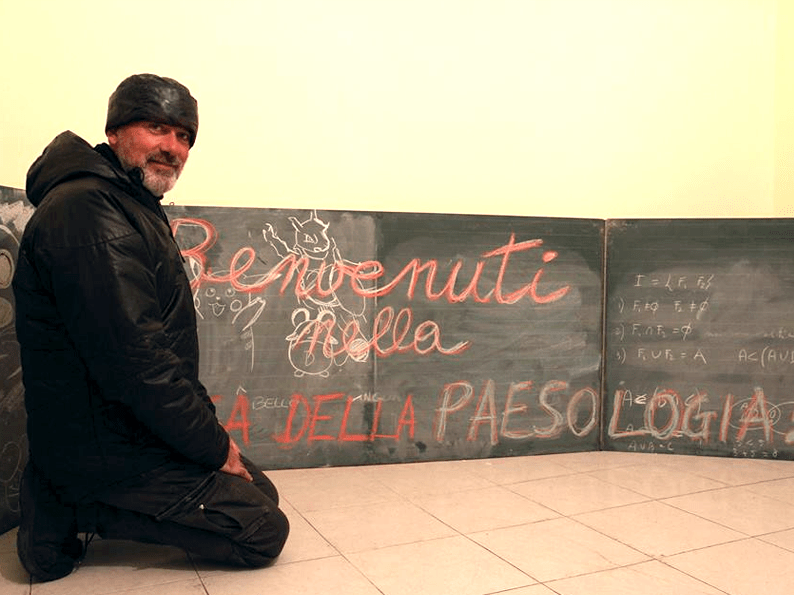 Benvenuti
nella
A DELLA PAESOLOGIA
BELLO
I = { F₁ F₂ {
1) F₁≠∅ F₂≠∅
2) F₁∩F₂=∅
3) F₁∪F₂ = A